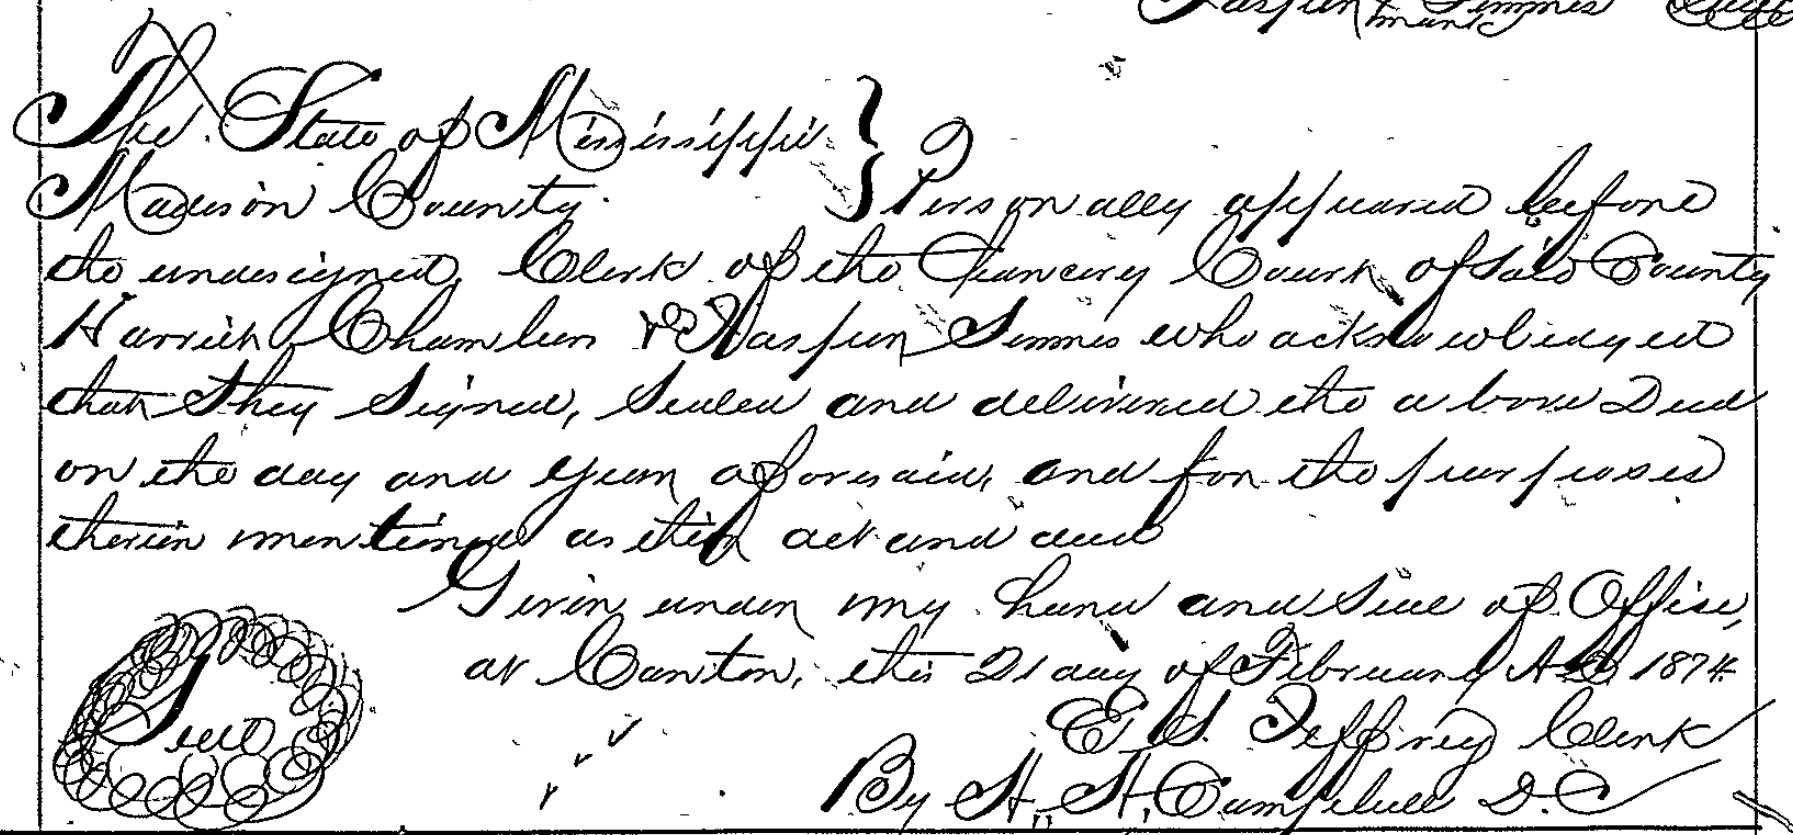 Simmes Seal
mark
The State of Mississippi }
Madison County. } Personally appeared before
the undersigned, Clerk of the Chancery Court of said County
Harriet Chambers & Jasper Simmes who acknowledged
that They Signed, Sealed and delivered the above Deed
on the day and year aforesaid, and for the purposes
therein mentioned as their act and deed
Given under my hand and Seal of Office,
at Canton, this 21 day of February A.D. 1874.
Seal
E. S. Jeffrey Clerk
By H. H. Campbell D.C